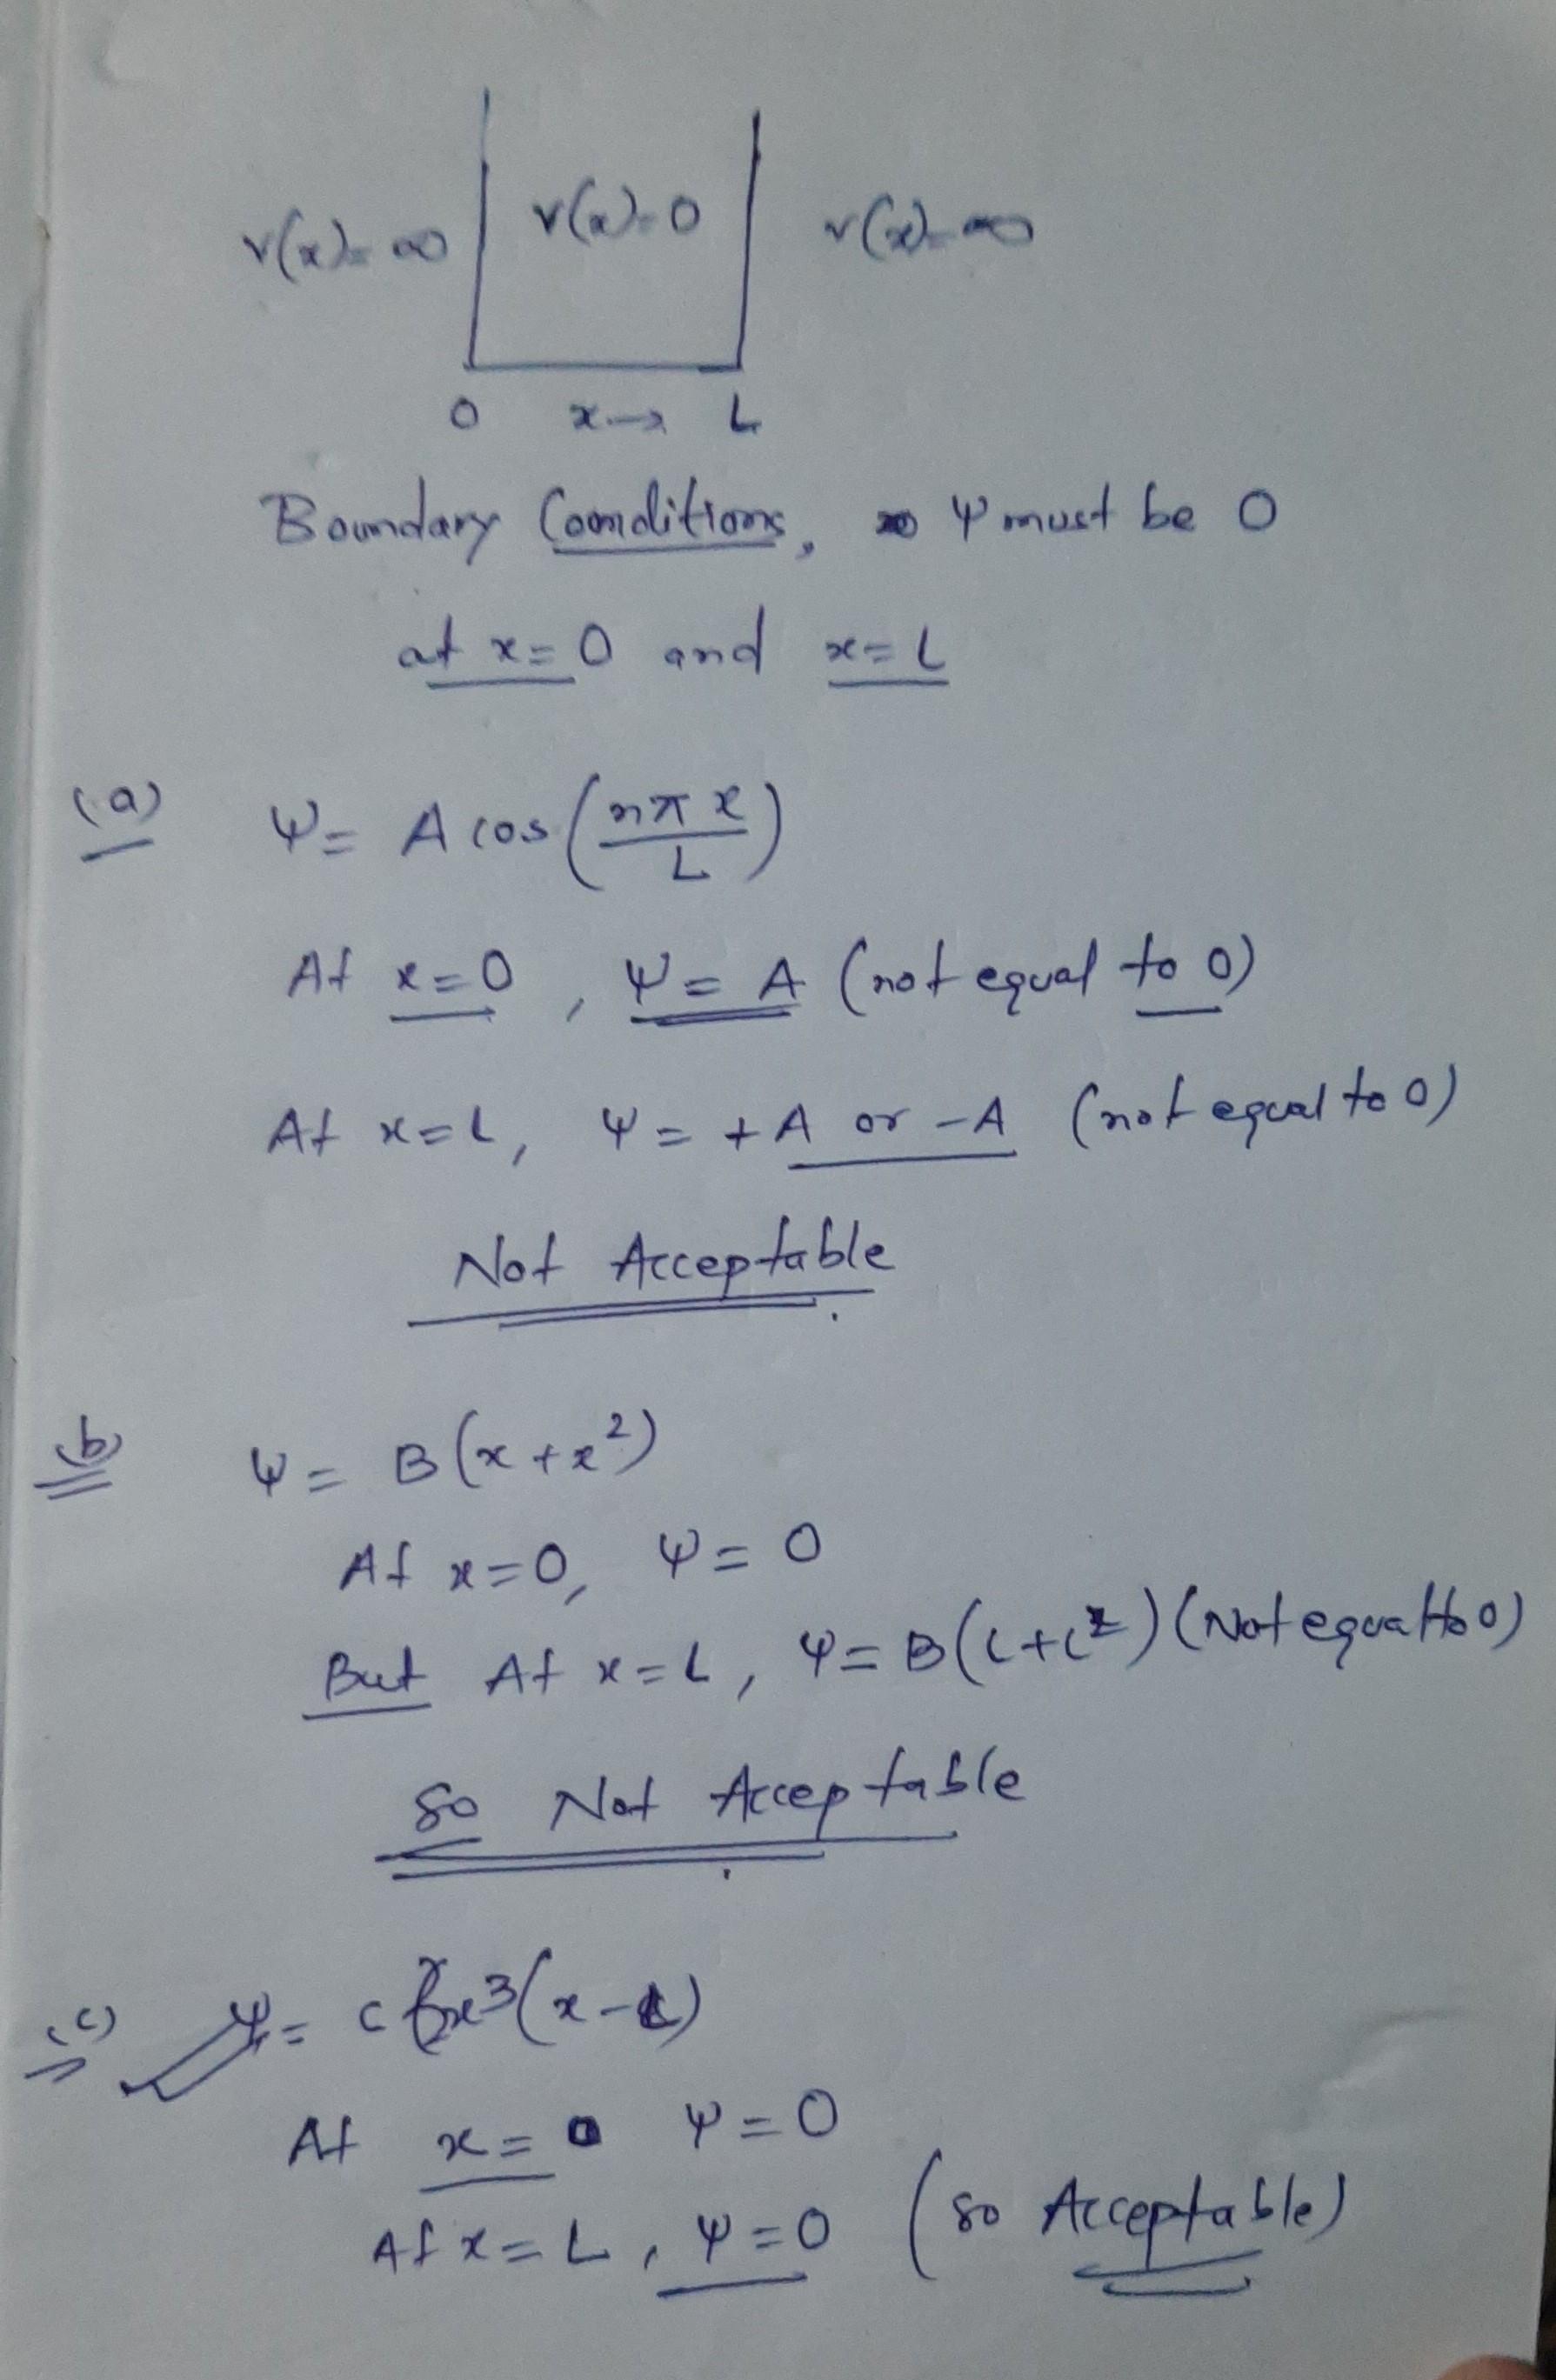 V(x)=∞ V(x)=0 V(x)=∞
0 x→ L
Boundary Conditions, ψ must be 0
at x=0 and x=L
(a) ψ= A cos(nπx/L)
At x=0, ψ= A (not equal to 0)
At x=L, ψ= +A or -A (not equal to 0)
Not Acceptable.
(b) ψ= B(x+x²)
At x=0, ψ=0
But At x=L, ψ=B(L+L²) (Not equal to 0)
So Not Acceptable.
(c) ψ= c x³(x-L)
At x=0 ψ=0
At x=L, ψ=0 (so Acceptable)